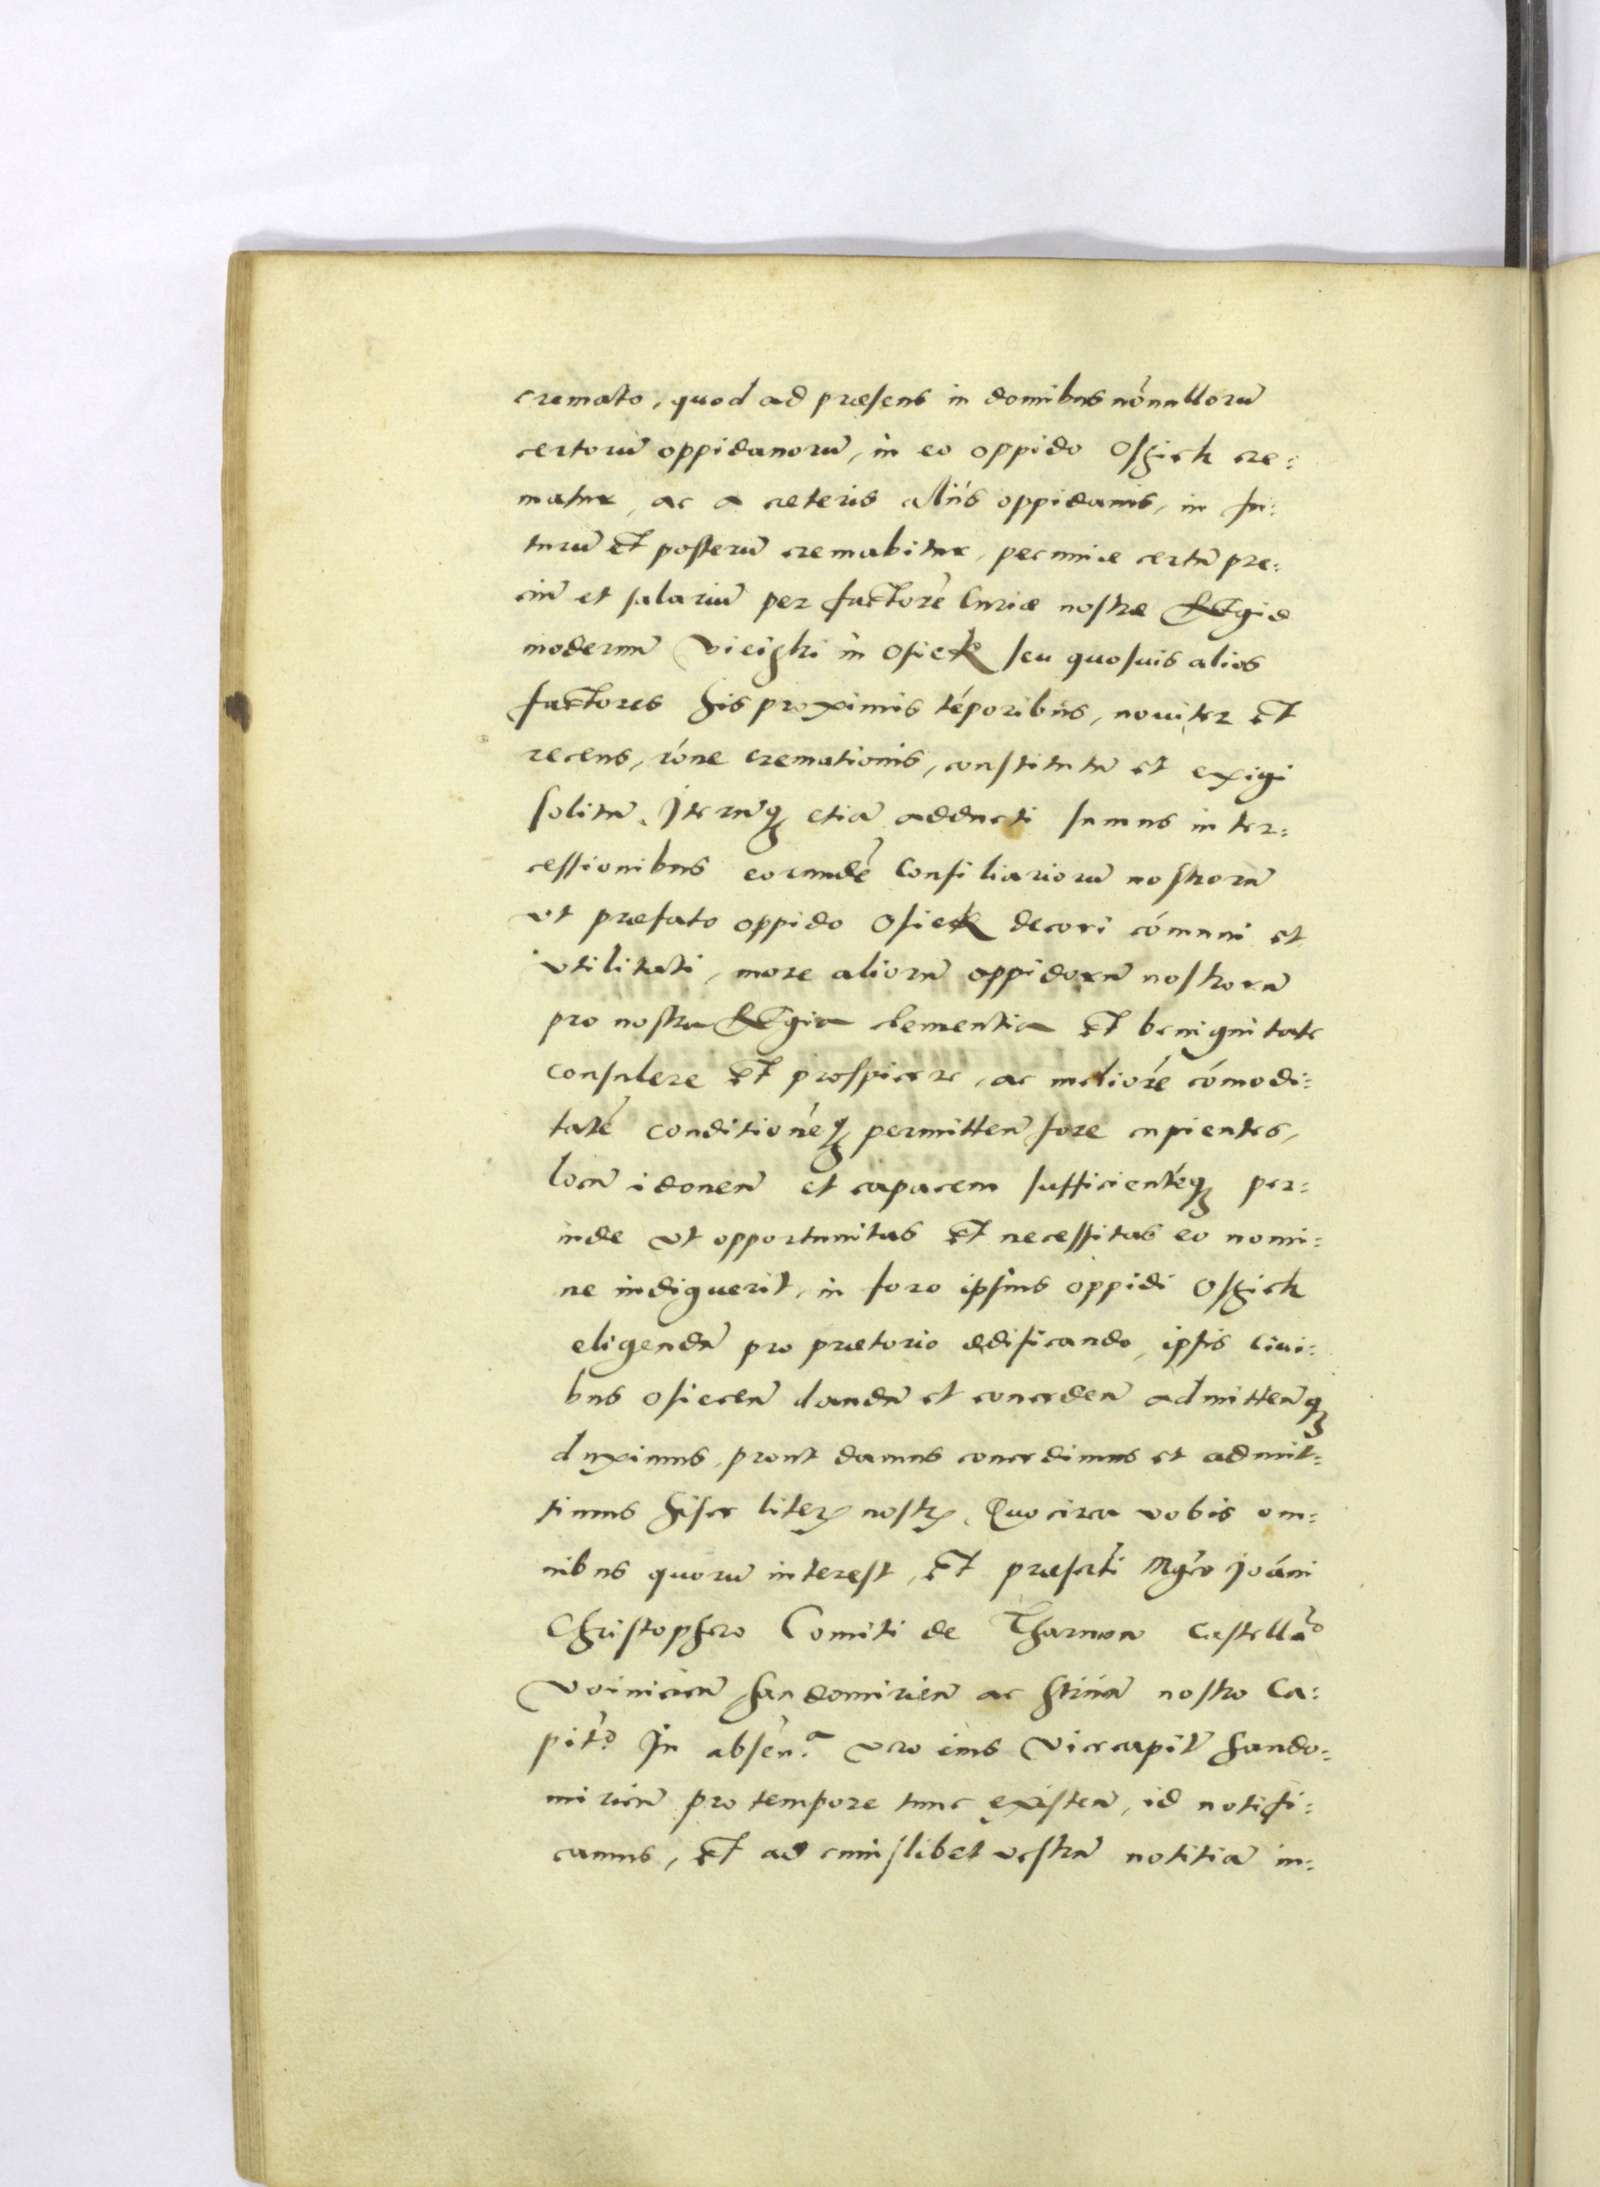 cremato, quod ad præsens in domibus nōnullorū
certorū oppidanorū, in eo oppido Osziek cre:
matur, ac a cæteris aliis oppidanis, in fu:
turū et posterū cremabitur, pecuniæ certū pre:
ciū et salariū per factorē Curiæ nostræ Regiæ
modernū in Osiek seu quosvis alios
factores his proximis tēporibus, noviter et
recens, rōne cremationis, constitutū et exigi
solitū. Iterūq etiā adducti sumus inter:
cessionibus eorundē Consiliariorū nostrorū
ut præfato oppido Osiek decori cōmuni et
utilitati, more aliorū oppidorū nostrorū
pro nostra Regia clementia et benignitate
consulere et prospicere, ac meliorē cōmodi:
tatē conditionēq permitten̄ fore cupientes,
locū idoneū et capacem sufficientēq per:
inde ut opportunitas et necessitas eo nomi:
ne indiguerit, in foro ipsius oppidi Osziek
eligendū pro prætorio ædificando, ipsis Civi:
bus Osiecen̄ dandū et conceden̄ admitten̄q
duximus, prout damus concedimus et admit:
timus hisce literꝭ nostrꝭ. Quocirca vobis om:
nibus quorū interest, et præsertī Mgco Joāni
Christophero Comiti de Tharnow Castellāo
Voinicen̄ Sandomirien̄ ac nostro Ca:
pitō. In absen.ᵃ vero eius Vicecapitō Sando:
mirien̄ pro tempore tunc existen̄, id notifi:
camus, et ad cuiuslibet vestrū notitiā in: